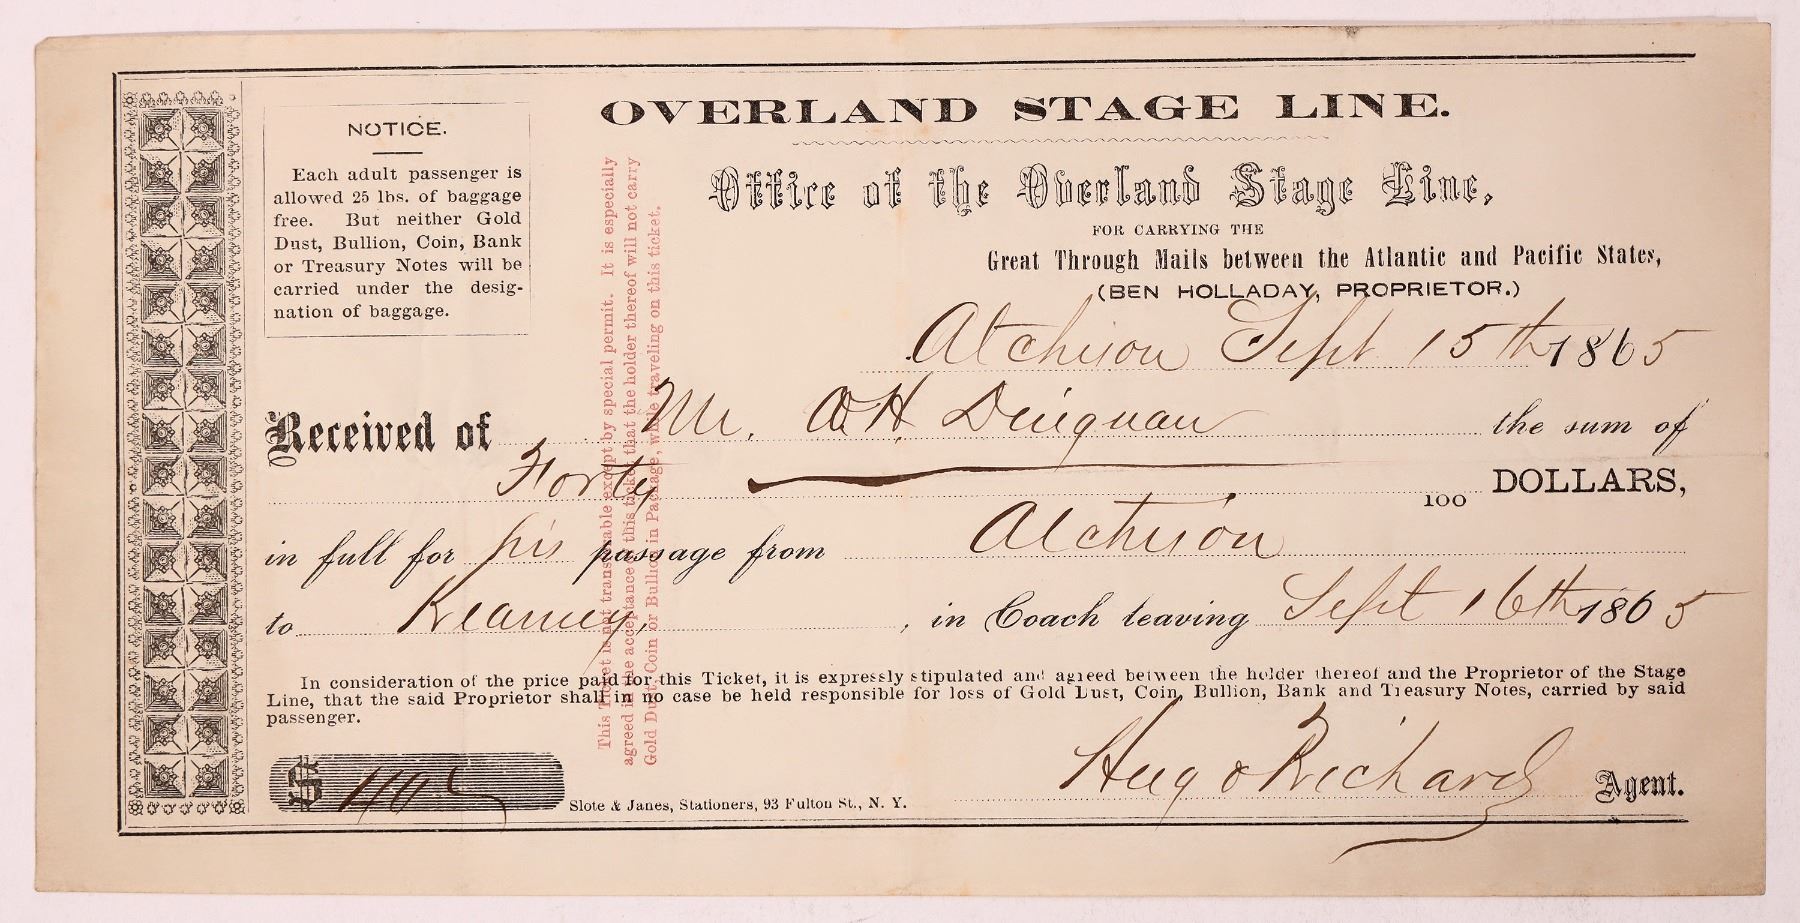 OVERLAND STAGE LINE.
Office of the Overland Stage Line,
FOR CARRYING THE
Great Through Mails between the Atlantic and Pacific States,
(BEN HOLLADAY, PROPRIETOR.)
NOTICE.
Each adult passenger is
allowed 25 lbs. of baggage
free. But neither Gold
Dust, Bullion, Coin, Bank
or Treasury Notes will be
carried under the desig-
nation of baggage.
This Ticket is not transferable except by special permit. It is especially
agreed in the acceptance of this ticket that the holder thereof will not carry
Gold Dust, Coin or Bullion in Package, while traveling on this ticket.
Atchison Sept 15th 1865
Received of Mr. H. the sum of
Forty 100 DOLLARS,
in full for his passage from Atchison
to Kearney, , in Coach leaving Sept 16th 1865
In consideration of the price paid for this Ticket, it is expressly stipulated and agreed between the holder thereof and the Proprietor of the Stage
Line, that the said Proprietor shall in no case be held responsible for loss of Gold Dust, Coin, Bullion, Bank and Treasury Notes, carried by said
passenger.
$ 40
Slote & Janes, Stationers, 93 Fulton St., N. Y.
Hugo Richards Agent.